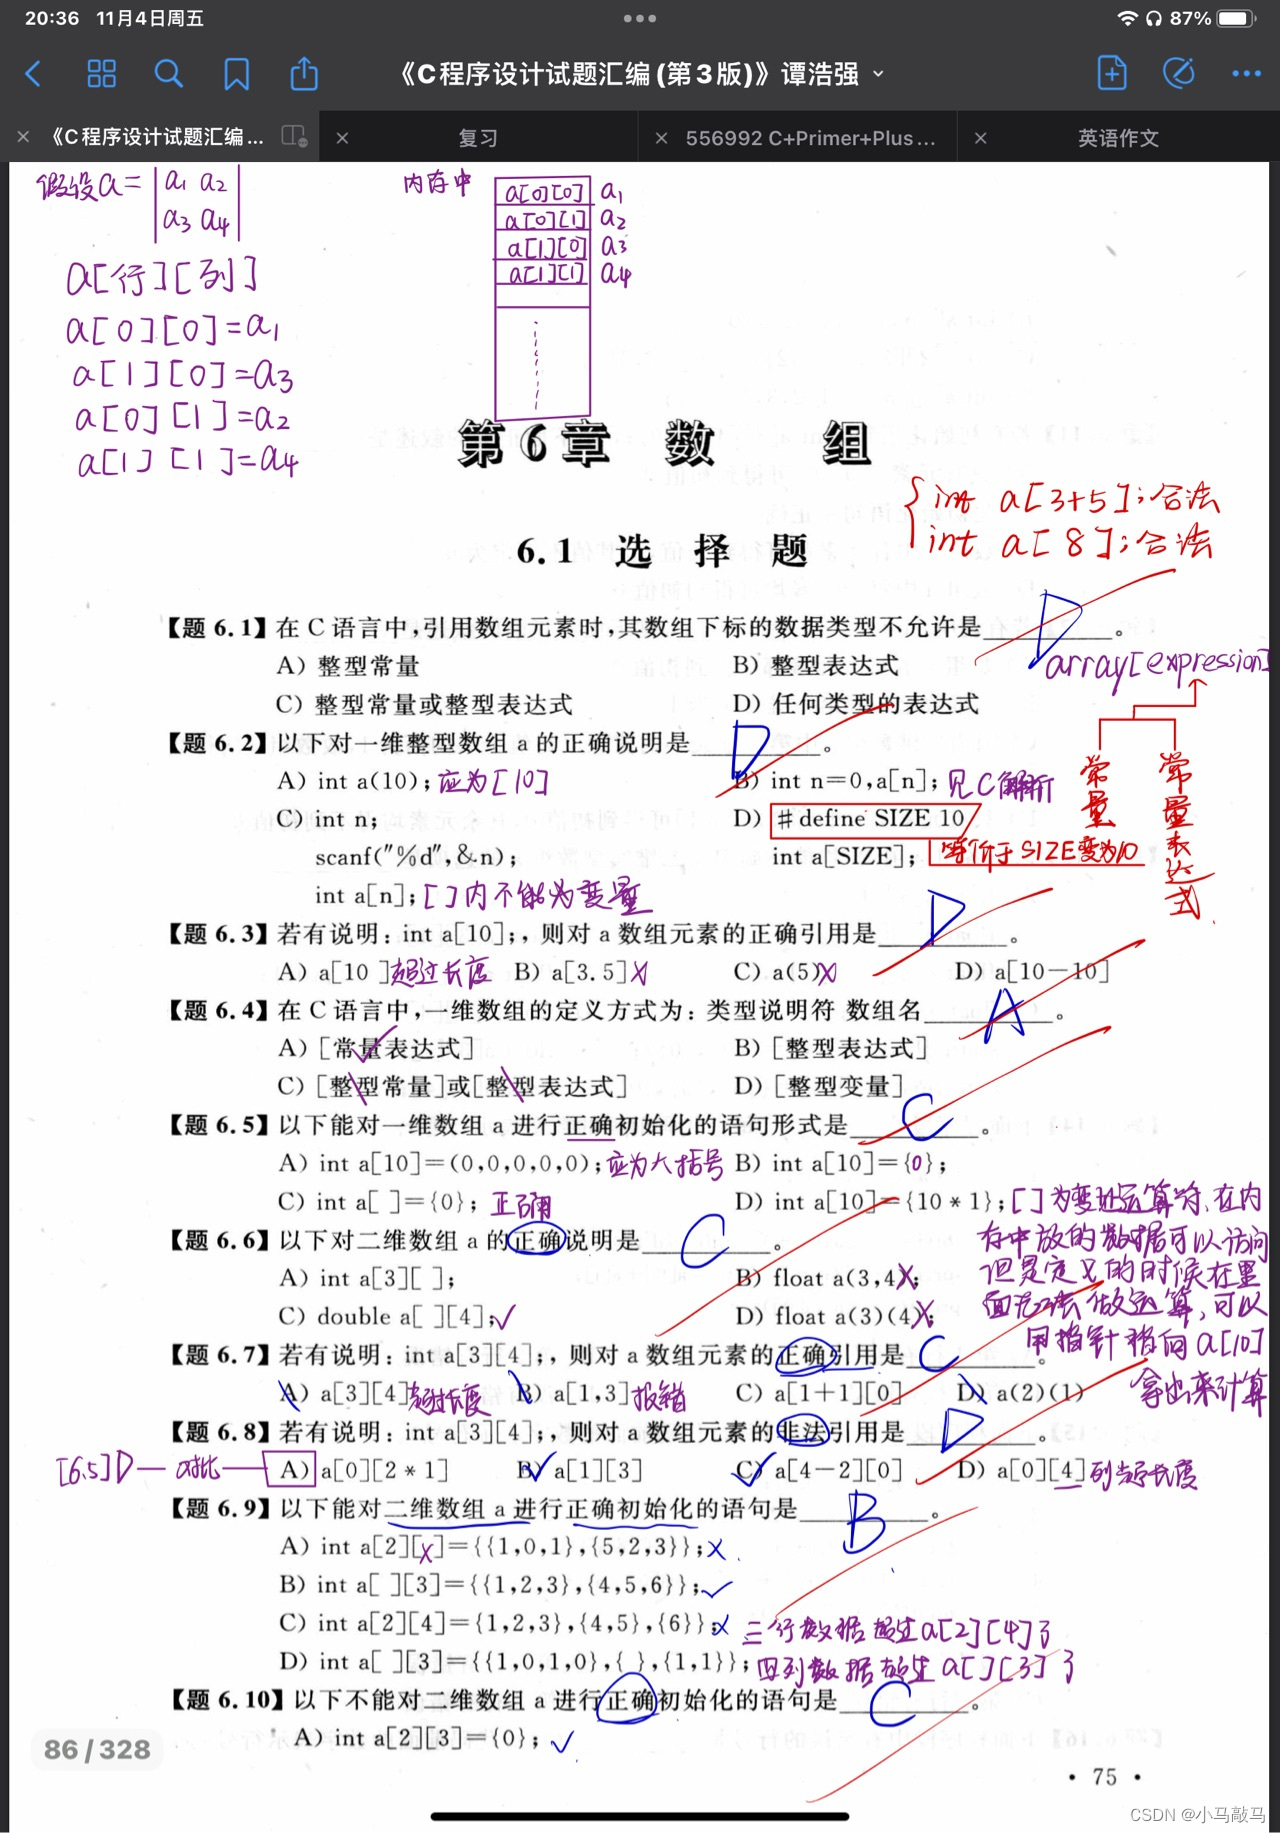 20:36 11月4日周五
87%
《C程序设计试题汇编(第3版)》谭浩强
《C程序设计试题汇编...
复习
556992 C+Primer+Plus...
英语作文
假设a=
a₁ a₂
a₃ a₄
a[行][列]
a[0][0]=a₁
a[1][0]=a₃
a[0][1]=a₂
a[1][1]=a₄
内存中
a[0][0] a₁
a[0][1] a₂
a[1][0] a₃
a[1][1] a₄
第6章 数 组
int a[3+5];合法
int a[8];合法
6.1 选 择 题
【题 6.1】在C语言中,引用数组元素时,其数组下标的数据类型不允许是 D 。
A) 整型常量 B) 整型表达式
C) 整型常量或整型表达式 D) 任何类型的表达式
array[expression]
常量 常量表达式
【题 6.2】以下对一维整型数组a的正确说明是 D 。
A) int a(10); 应为[10] B) int n=0,a[n]; 见C解析
C) int n; D) #define SIZE 10
scanf("%d",&n); int a[SIZE]; 等价于SIZE变为10
int a[n]; []内不能为变量
【题 6.3】若有说明:int a[10];,则对a数组元素的正确引用是 D 。
A) a[10 ] 超过长度 B) a[3.5] X C) a(5) X D) a[10-10]
【题 6.4】在C语言中,一维数组的定义方式为:类型说明符 数组名 A 。
A) [常量表达式] B) [整型表达式]
C) [整型常量]或[整型表达式] D) [整型变量]
【题 6.5】以下能对一维数组a进行正确初始化的语句形式是 C 。
A) int a[10]=(0,0,0,0,0); 应为大括号 B) int a[10]={0};
C) int a[ ]={0}; 正确 D) int a[10]={10*1};
[]为变址运算符,在内
存中放的数据可以访问
但是定义的时候在里
面无法做运算,可以
用指针指向a[10]
拿出来计算
【题 6.6】以下对二维数组a的正确说明是 C 。
A) int a[3][ ]; B) float a(3,4); X
C) double a[ ][4]; ✓ D) float a(3)(4); X
【题 6.7】若有说明:int a[3][4];,则对a数组元素的正确引用是 C 。
A) a[3][4] 超过长度 B) a[1,3] 报错 C) a[1+1][0] D) a(2)(1)
【题 6.8】若有说明:int a[3][4];,则对a数组元素的非法引用是 D 。
[6.5]D— 对比— A) a[0][2*1] B) a[1][3] C) a[4-2][0] D) a[0][4] 列长度
【题 6.9】以下能对二维数组a进行正确初始化的语句是 B 。
A) int a[2][ ]={{1,0,1},{5,2,3}}; X
B) int a[ ][3]={{1,2,3},{4,5,6}}; ✓
C) int a[2][4]={1,2,3},{4,5},{6}}; X 三行数据超出a[2][4]了
D) int a[ ][3]={{1,0,1,0},{ },{1,1}}; 四列数据超出a[][3]了
【题 6.10】以下不能对二维数组a进行正确初始化的语句是 C 。
A) int a[2][3]={0}; ✓
86/328
• 75 •
CSDN @小马敲马